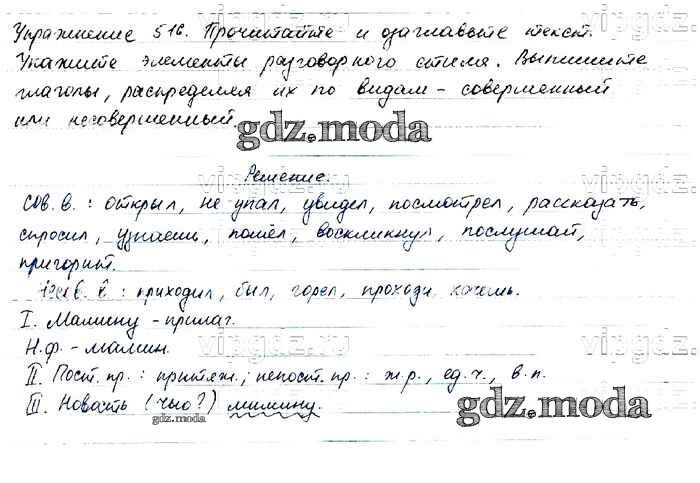 Упражнение 516. Прочитайте и озаглавьте текст.
Укажите элементы разговорного стиля. Выпишите
глаголы, распределяя их по видам – совершенный
или несовершенный.
gdz.moda
Решение.
vipgdz.ru
сов. в. : открыл, не упал, увидел, посмотрел, рассказать,
спросил, узнаешь, пошёл, воскликнул, послушай,
пригорит.
в. : приходил, был, горел, проходи, хочешь.
I. Мамину - прилаг.
Н.ф. - мамин.
vipgdz.ru
II. Пост. пр. : притяж.; непост. пр. : ж.р., ед.ч., в.п.
III. Новость (чью?) мамину.
gdz.moda
gdz.moda